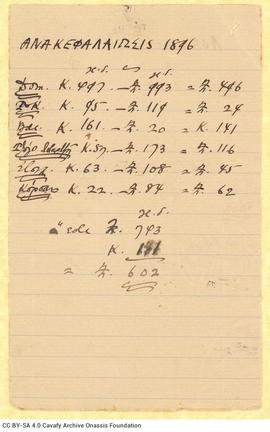 ΑΝΑΚΕΦΑΛΑΙΩΣΙΣ 1896
χ.δ. χ.δ.
Κ. 497 — Ζ. 993 = Ζ. 496
Κ. 95 — Ζ. 119 = Ζ. 24
Κ. 161 — Ζ. 20 = Κ. 141
Κ. 57 — Ζ. 173 = Ζ. 116
Κ. 63 — Ζ. 108 = Ζ. 45
Κ. 22 — Ζ. 84 = Ζ. 62
χ.δ.
Ζ. 743
Κ. 141
= Ζ. 602
CC BY-SA 4.0 Cavafy Archive Onassis Foundation